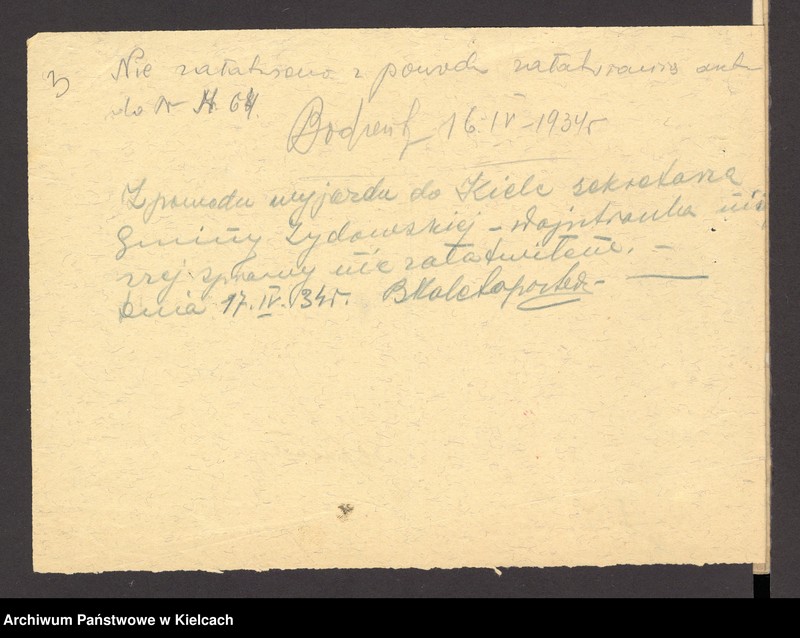 3
Nie załatwiono z powodu załatwiania
do Nr 64.
16.IV-1934r
Z powodu wyjazdu do Kielc sekretarza
Gminy Żydowskiej - Wajntrauba niniej
szej sprawy nie załatwiłem. -
dnia 17.IV.34r.
Archiwum Państwowe w Kielcach